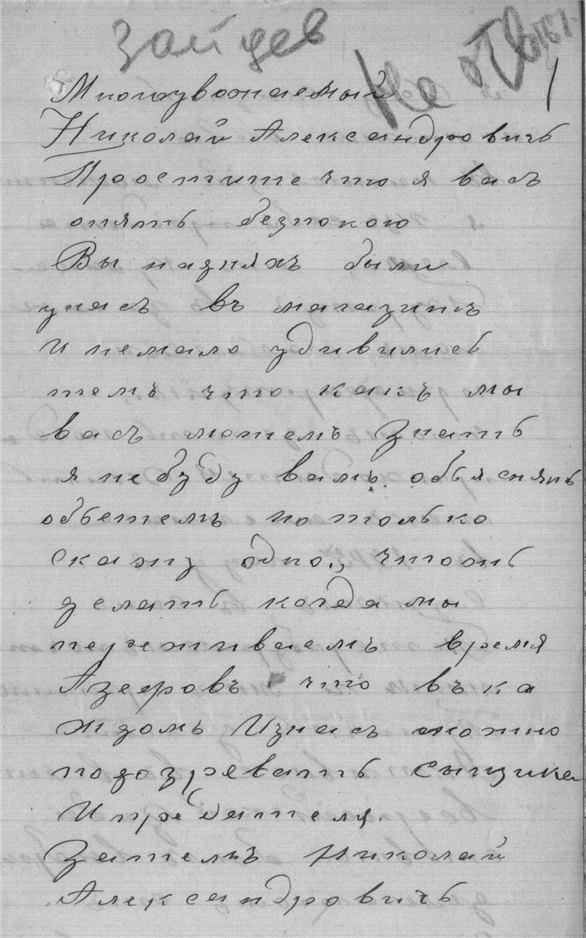 Зайцев
Не отв
1
Многоуважаемый
Николай Александровичъ
Простите что я васъ
опять безпокою
Вы надняхъ были
унасъ въ магазинъ
И немало удивились
темъ что какъ мы
васъ можемъ знать
я небуду вамъ объяснять
объетемъ но только
скажу одно, чтожъ
делать когда мы
переживаемъ время
Азефовъ что въка
ждомъ Изнасъ можно
подозревать сыщика
И предателя.
Затемъ Николай
Александровичъ